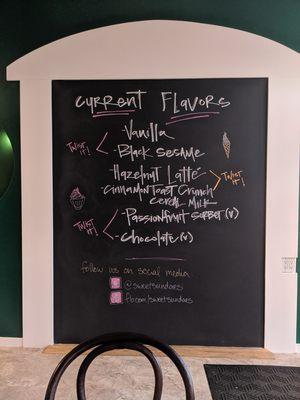 Current Flavors
- Vanilla
- Black Sesame
TWIST IT!
Hazelnut Latte
- Cinnamon Toast Crunch
Cereal Milk
TWIST IT!
- Passionfruit Sorbet (V)
- Chocolate (V)
TWIST IT!
follow us on social media
@sweetsundaes
fb.com/sweetsundaes